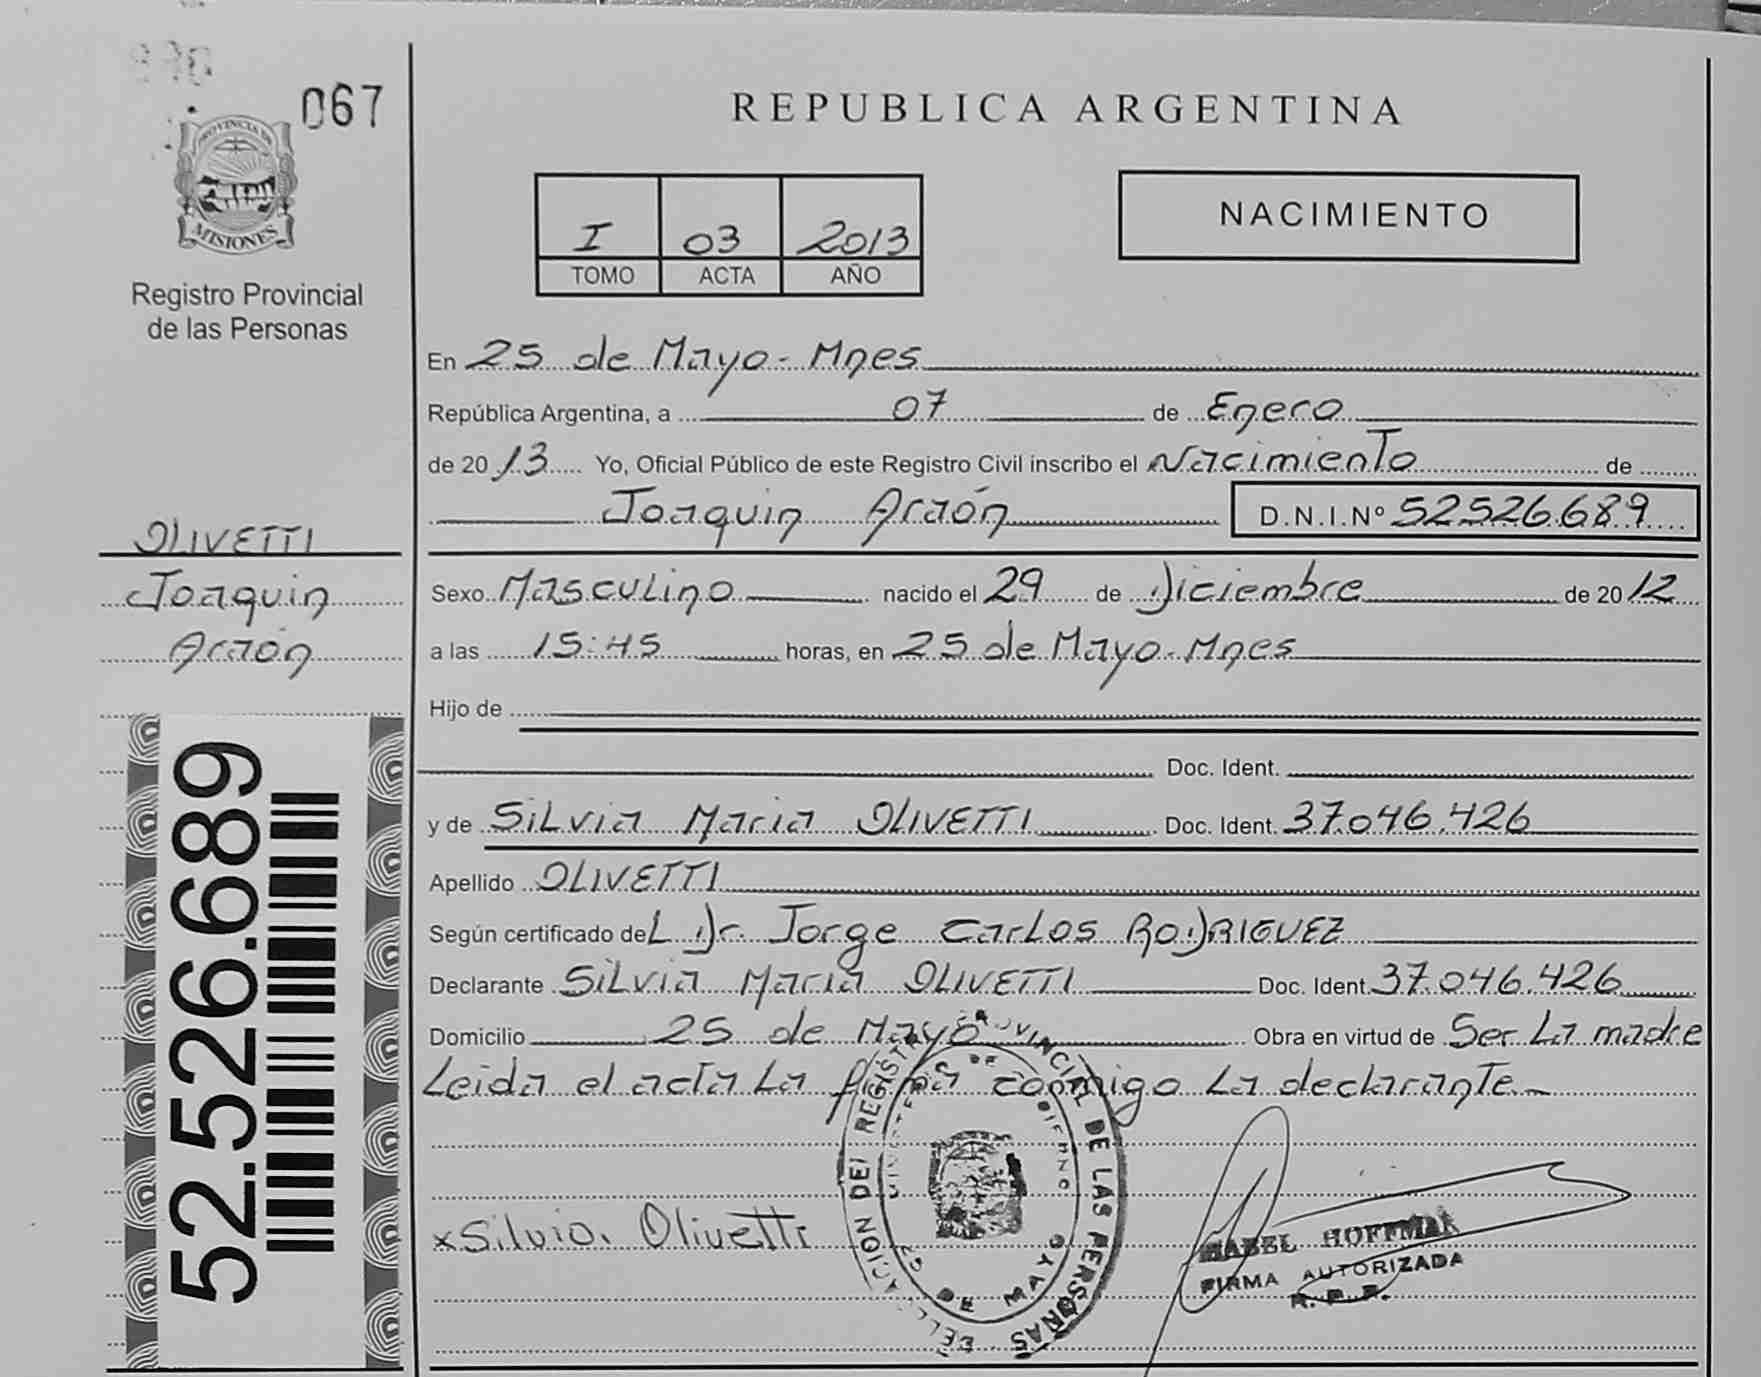 067
PROVINCIA DE
MISIONES
Registro Provincial
de las Personas
OLIVETTI
Joaquin
Araón
52.526.689
REPUBLICA ARGENTINA
I 03 2013
TOMO ACTA AÑO
NACIMIENTO
En 25 de Mayo - Mnes
República Argentina, a 07 de Enero
de 2013 Yo, Oficial Público de este Registro Civil inscribo el Nacimiento de
Joaquin Araón D.N.I.Nº 52526.689
Sexo Masculino nacido el 29 de Diciembre de 2012
a las 15:45 horas, en 25 de Mayo - Mnes
Hijo de
Doc. Ident.
y de Silvia Maria OLIVETTI Doc. Ident. 37.046.426
Apellido OLIVETTI
Según certificado del Dr. Jorge Carlos RODRIGUEZ
Declarante Silvia Maria OLIVETTI Doc. Ident. 37.046.426
Domicilio 25 de Mayo Obra en virtud de Ser La madre
Leida el acta La firma conmigo La declarante
x Silvia. Olivetti
DEL REGISTRO PROVINCIAL DE LAS PERSONAS
25 DE MAYO
HOFFMAN
FIRMA AUTORIZADA
R. P. P.